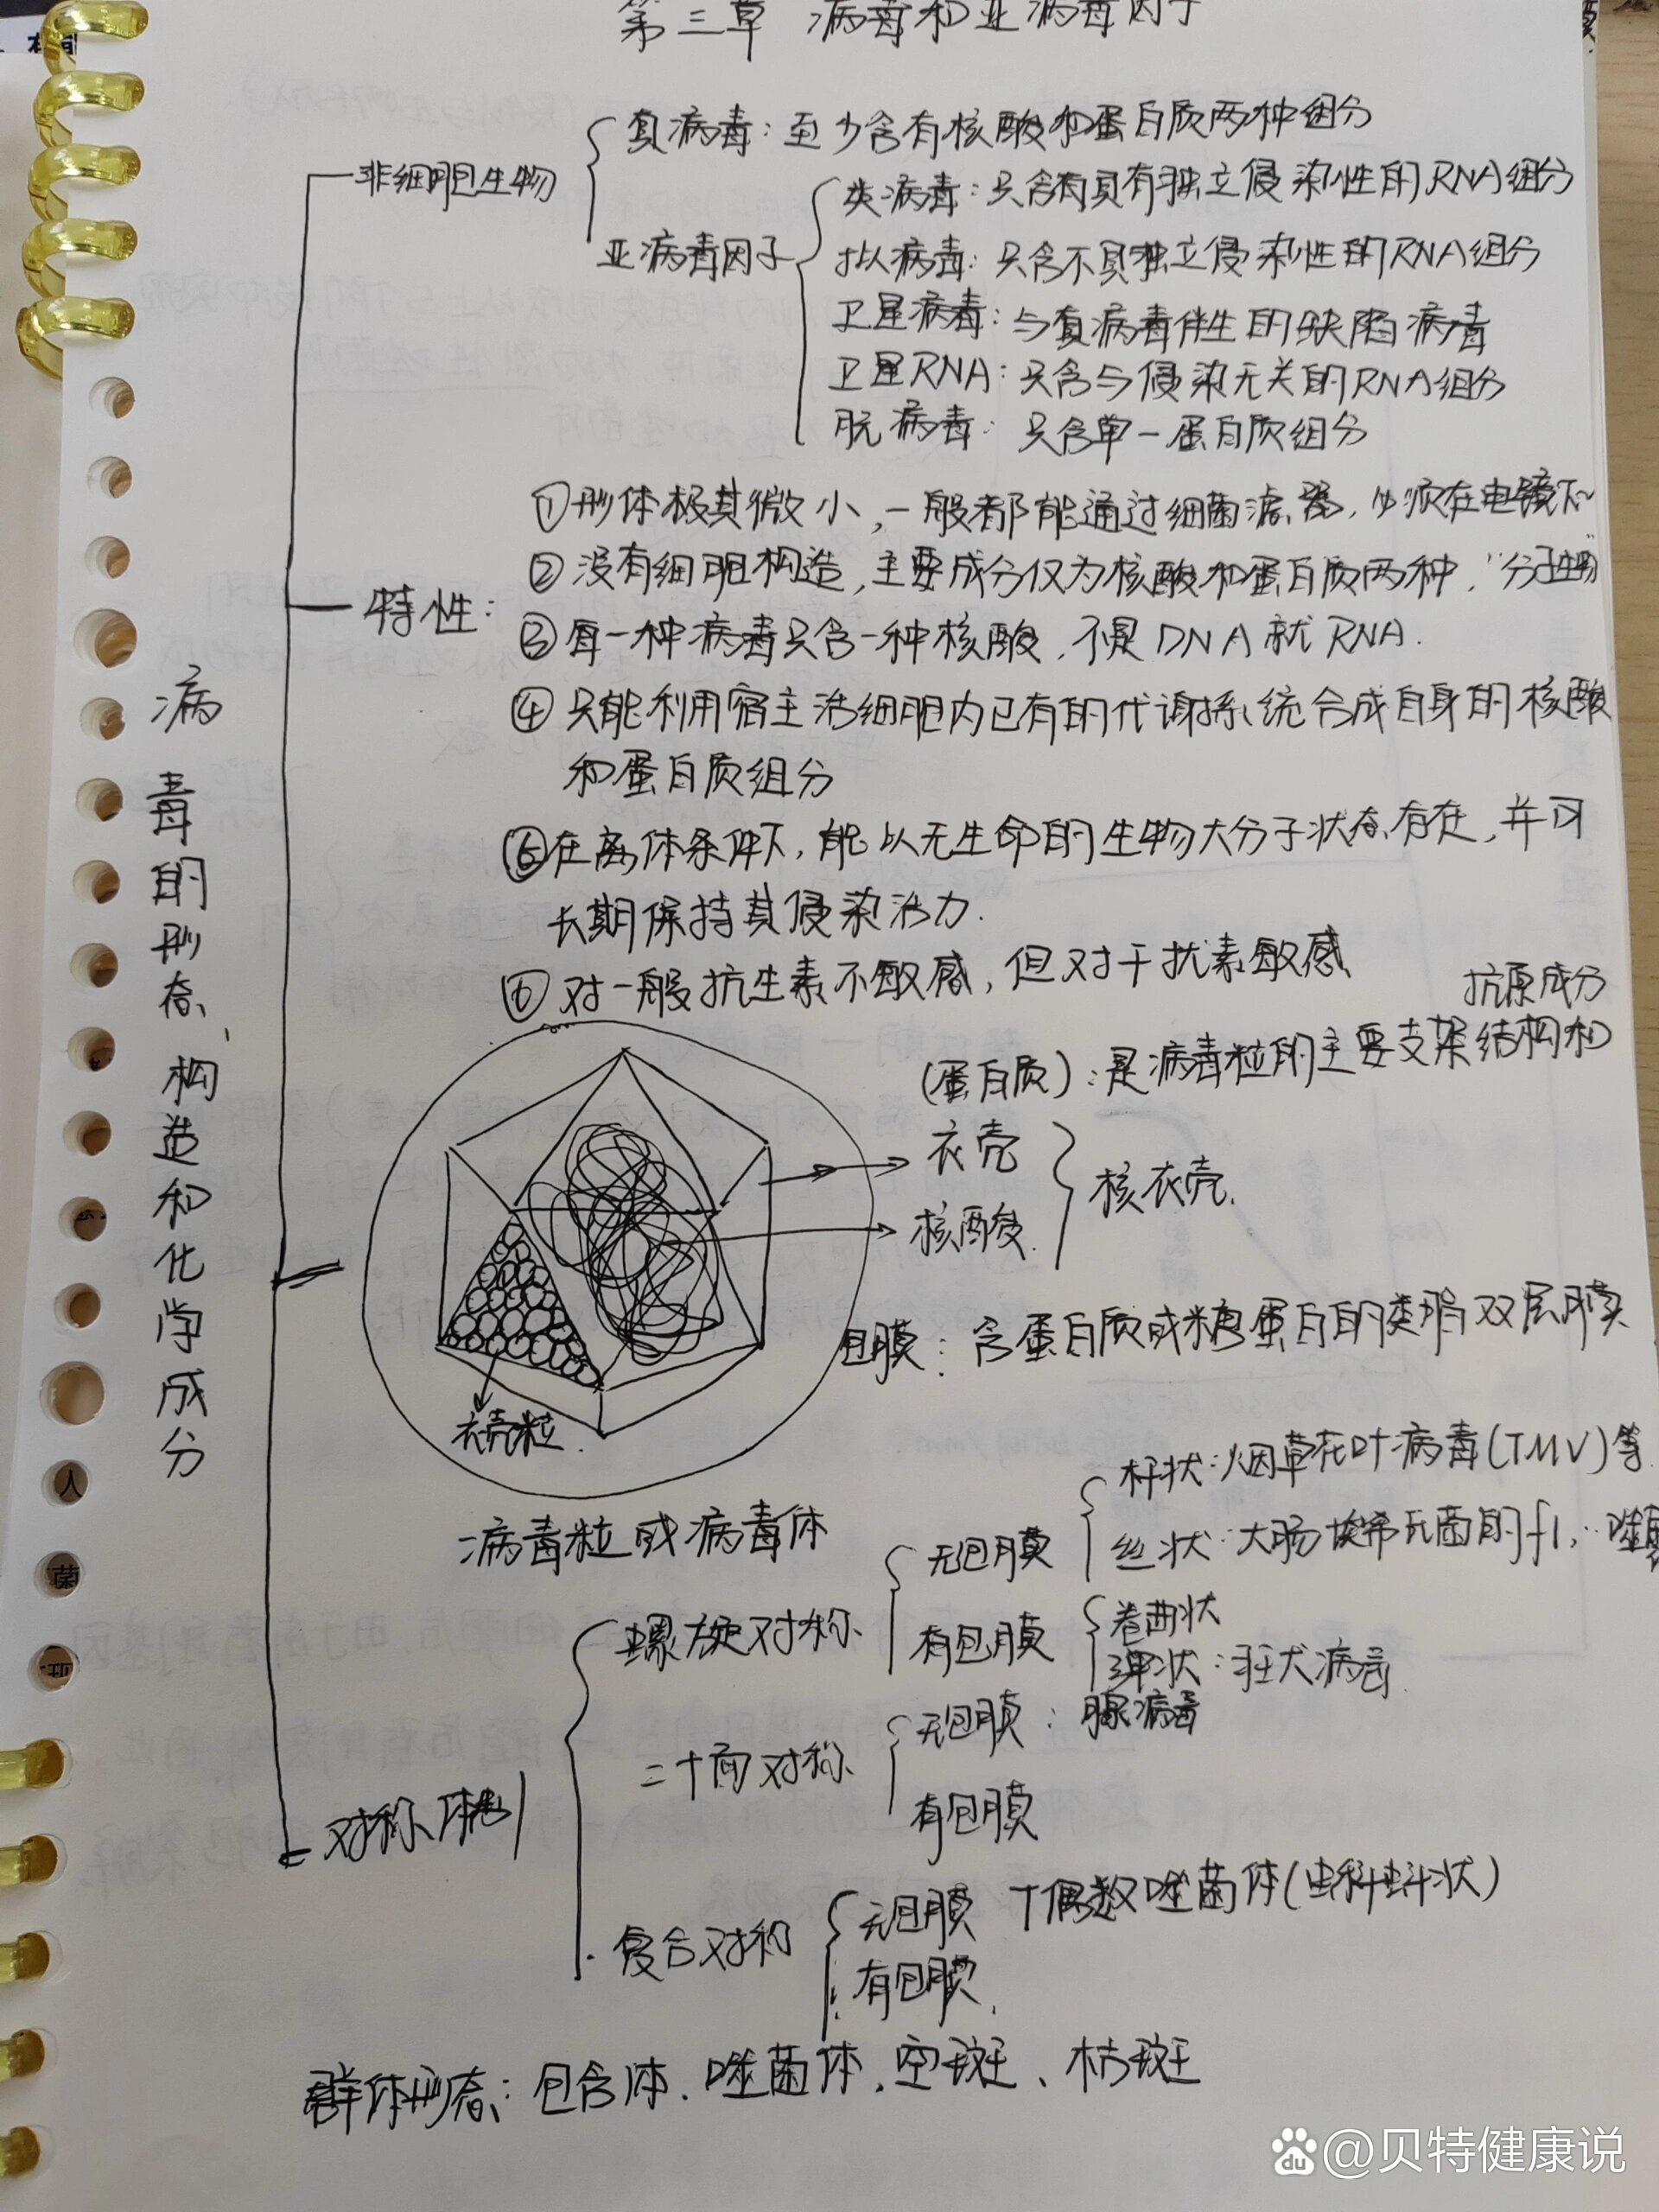 第三章 病毒和亚病毒因子
非细胞生物
真病毒：至少含有核酸和蛋白质两种组分
亚病毒因子
类病毒：只含有具有独立侵染性的RNA组分
拟病毒：只含不具独立侵染性的RNA组分
卫星病毒：与真病毒伴生的缺陷病毒
卫星RNA：只含与侵染无关的RNA组分
朊病毒：只含单一蛋白质组分
特性：
①形体极其微小，一般都能通过细菌滤器，必须在电镜下~
②没有细胞构造，主要成分仅为核酸和蛋白质两种，"分子生物"
③每一种病毒只含一种核酸，不是DNA就RNA.
④只能利用宿主活细胞内已有的代谢系统合成自身的核酸
和蛋白质组分
⑤在离体条件下，能以无生命的生物大分子状态存在，并可
长期保持其侵染活力.
⑥对一般抗生素不敏感，但对干扰素敏感
病毒的形态、构造和化学成分
抗原成分
(蛋白质)：是病毒粒的主要支架结构和
衣壳
核酸.
核衣壳.
包膜：含蛋白质或糖蛋白的类脂双层膜
衣壳粒.
病毒粒或病毒体
对称体制
螺旋对称
无包膜
杆状：烟草花叶病毒(TMV)等
丝状：大肠埃希氏菌的f1,
有包膜
卷曲状
弹状：狂犬病毒
二十面对称
无包膜：腺病毒
有包膜
复合对称
无包膜 T偶数噬菌体(蝌蚪状)
有包膜.
群体形态：包含体、噬菌体、空斑、枯斑
du @贝特健康说